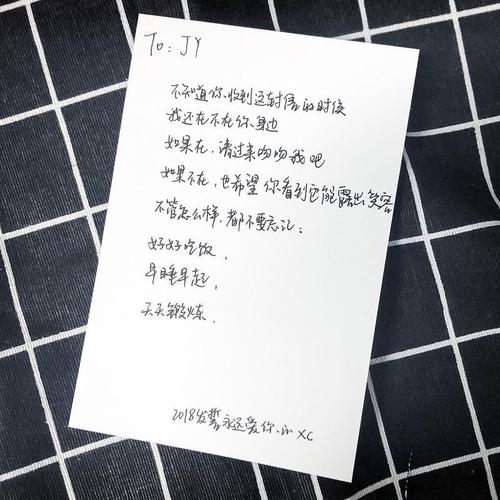 To: JY
不知道你收到这封信的时候
我还在不在你身边
如果在,请过来吻吻我吧
如果不在,也希望你看到它能露出笑容
不管怎么样,都不要忘记:
好好吃饭,
早睡早起,
天天锻炼.
2018发誓永远爱你的XC